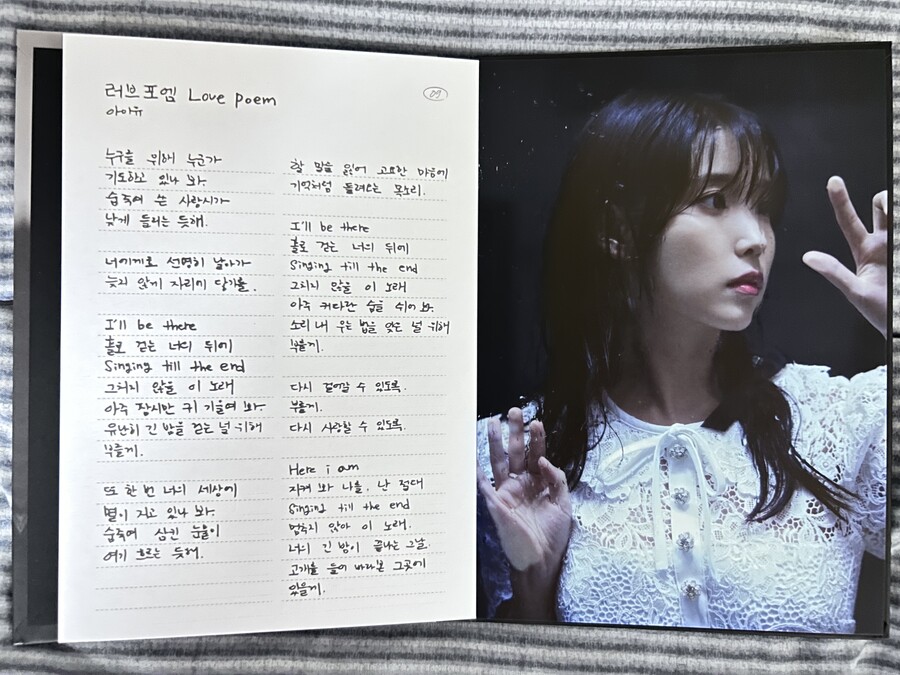 러브포엠 Love poem
09
아이유
누구를 위해 누군가
기도하고 있나 봐.
숨죽여 쓴 사랑시가
낮게 들리는 듯해.
너에게로 선명히 날아가
늦지 않게 자리에 닿기를.
I'll be there
홀로 걷는 너의 뒤에
Singing till the end
그치지 않을 이 노래
아주 잠시만 귀 기울여 봐.
유난히 긴 밤을 걷는 널 위해
부를게.
또 한 번 너의 세상에
별이 지고 있나 봐.
숨죽여 삼킨 눈물이
여기 흐르는 듯해.
할 말을 잃어 고요한 마음에
기억처럼 들려오는 목소리.
I'll be there
홀로 걷는 너의 뒤에
Singing till the end
그치지 않을 이 노래
아주 커다란 숨을 쉬어 봐.
소리 내 우는 법을 잊은 널 위해
부를게.
다시 걸어갈 수 있도록.
부를게.
다시 사랑할 수 있도록.
Here i am
지켜 봐 나를, 난 절대
Singing till the end
멈추지 않아 이 노래.
너의 긴 밤이 끝나는 그날
고개를 들어 바라본 그곳에
있을게.